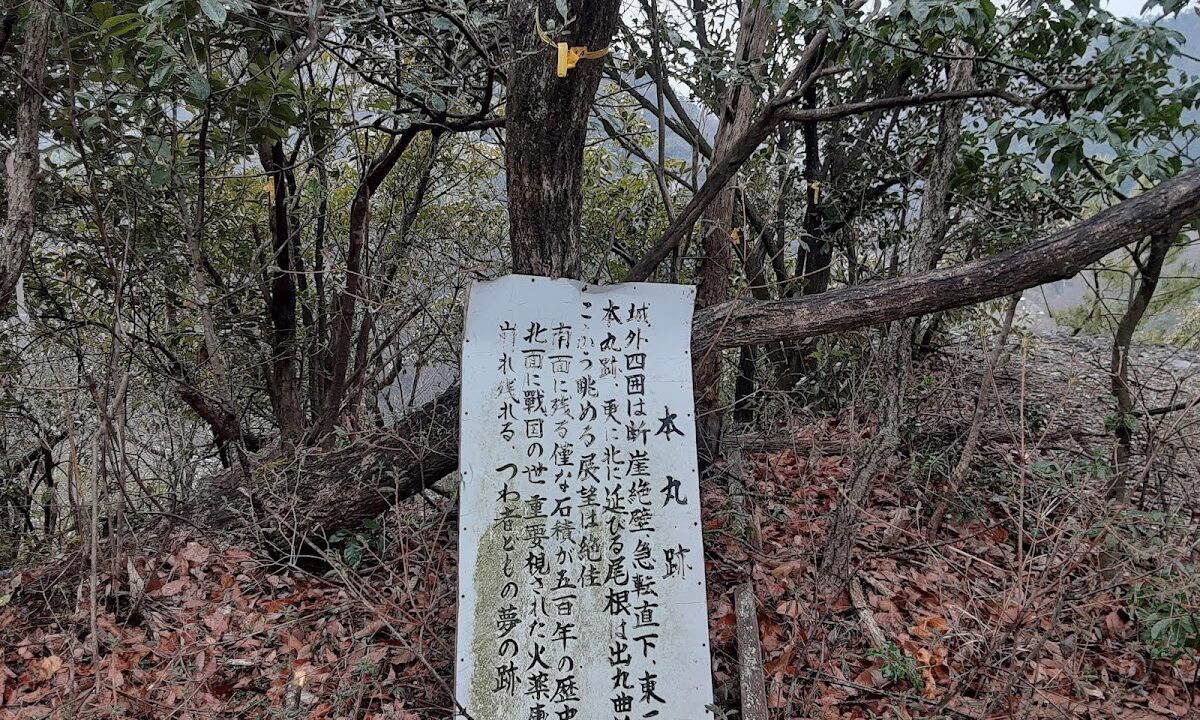 本丸跡
城外四囲は断崖絶壁、急転直下、東
本丸跡、更に北に延びる尾根は出丸曲
こゝから眺める展望は絶佳
南面に残る僅な石積が五百年の歴史
北面に戰国の世重要視された火薬庫
崩れ残れる、つわ者どもの夢の跡